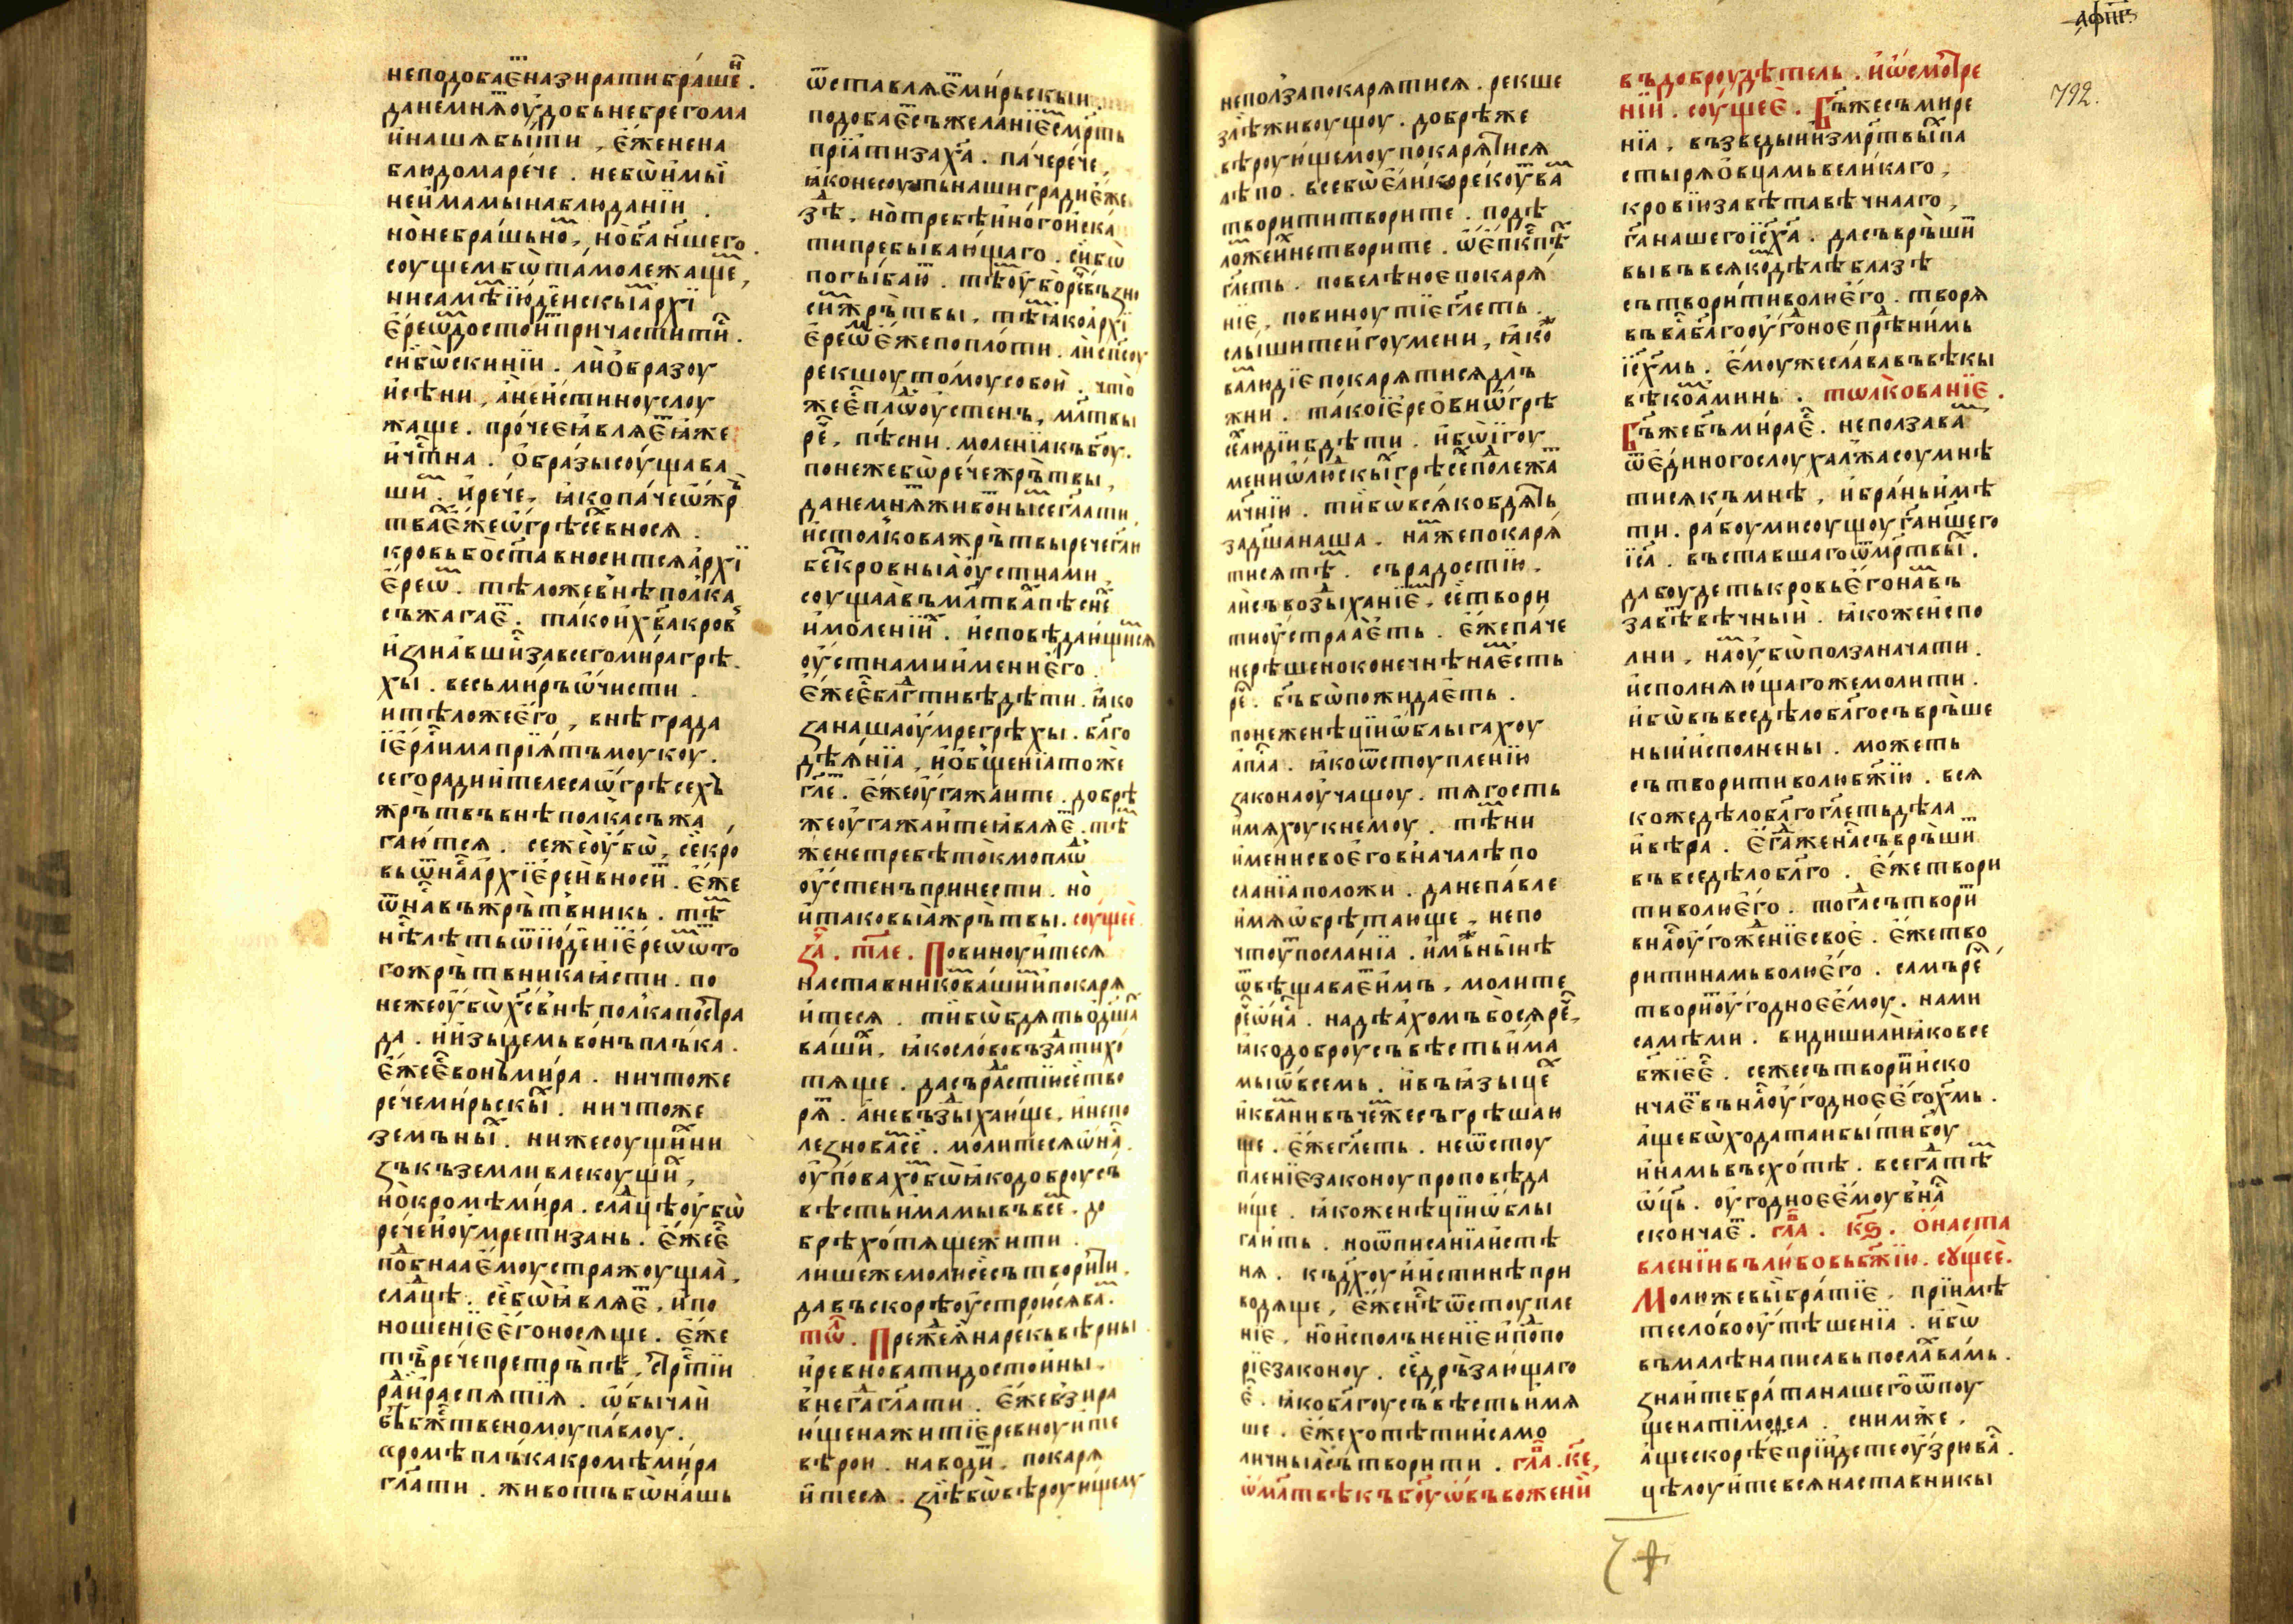 неподобаⷮ҇еназнратибра́шеⷩ҇.
данемнѧⷮоу҆добьнебрегома
и҆нашѧбы́ти, е҆́женена
блюдомаре́че. небѡи҆мы
неи҆́мамынаблюданїи.
но̀небра́шьноⷨ, но̀б҃а́ншего
соущембѡта́молежащеⷨ,
нисамⷨѣїю҆де́нскыⷨа҆рхї
е҆реѡⷨдостои҆ⷮпричаститиⷭ҇.
сиⷯбѡскинїи. лѝо҆́бразоу
и҆сѣни, а҆́неи҆́стинноуслоу
жаще. про́чееꙗ҆влѧеⷮꙗ҆́же
и҆чⷭ҇тна. о҆́бразысоущава
шиⷨ. и҆рече, ꙗ҆копа́чеѡ҆жрⷬ
тваⷯе҆́жеѡ҆грѣсеⷯвносѧ.
кровьбо̀ставноситсѧа҆рхї
е҆реѡⷨ. тѣложев̾нѣпол̾ка
съжагаеⷮ. та́кои҆х҃вакровⷽ
и҆ꙁлиѧ́вшиⷭ҇завсегоми́рагрѣ.
хы̀. весьми́ръѡ҆чисти.
итѣложеего̀, внѣграда
їе҆рⷭ҇ли́мапрїѧ́тъмоукоу.
сегорадиⷤи҆телесаѡ҆грѣсехъ
жрътвъвнѣполкасъжа
гаютсѧ. сежѐоу҆бѡ, се҆́кро
вьѡⷮна̑а҆рхїере́ивноси. е҆́же
ѿна̑въжръ́твникь. тѣⷨ
нⷭ҇ѣлѣтьѿїю҆денїе҆реѡⷨѿто
гожрътвникаꙗ҆́сти. по
нежеоу҆бѡх҃свнѣпол̾капоⷭ҇тра
да. и҆и҆зы́демьво́нъплъка.
е҆́жее҆ⷭ҇вонь́ми́ра. ничтоже
ре́чеми́рьскыⷯ. ничтоже
земъныⷯ. нижесоущиⷯнн
ꙁъкъземливлекоущиⷯ,
но̀кромѣми́ра. слаⷣцѣоу҆бѡ
ре́чеи҆оумретизань. е҆́жее҆ⷭ҇
поⷣбнааемоустражоущаа,
слаⷣцѣ. се҆́бѡꙗ҆влѧеⷮ, и҆по
ношенїеего̀носѧще. е҆́же
тъⷤре́чепретръпѣ, стрⷭ҇тїи
раⷣи҆распѧтїѧ. ѡ҆бычаи
бѣбж҃твеномоупа́влоу.
акромѣплъкакромѣми́ра
гл҃ати. животъбѡна́шь
ѿставлѧеⷮми́рьскыи.
подобаеⷮсъжеланїеⷨсмр҃ть
прїа́тизахⷭ҇а. па́чере́че,
ꙗ҆́конесоутьна́шиградие҆́же
зⷣѣ, но̀требѣи҆но́гои҆ска́
типребываю́щаго. сиⷯбѡ
погы́баюⷮ. тѣⷨоу҆бо́ревъꙁно
сиⷨжръ́твы, тѣⷨꙗ҆коа҆рхї
е҆реѡⷨе҆́жепопло́ти. а҆и҆с҃съсоу
рекшоуто́моусобою̀. что̀
жее҆ⷭ҇плоⷣоу҆стенъ, мл҃твы
реⷱ҇, пѣсни. моленїакъб҃оу.
понежебѡре́чежръ́твы,
данемнѧⷮживо́ныⷯсегл҃ати,
и҆столковажрътвыречегⷭ҇ан
бескровныаоу҆стнами,
соущаавъмл҃тваⷯпѣснеⷯ
и҆моленїиⷯ. и҆сповѣдающисѧ
оу҆стнамии҆мениего̀.
е҆́жее҆ⷭ҇бл҃гⷣтивѣдѣти. ꙗ҆ко
ꙁанашаоу҆мрегрѣхы. бл҃го
дѣѧнїа, и҆о҆бщенїатоже
гл҃е. е҆́жеоу҆гажа́ите. добрѣ
жеоу҆гажаитеꙗ҆влѧеⷮ. тѣⷨ
женетребѣто̀кмоплоⷣ
оу҆стенъпринести. но̀
и҆таковыажръ́твы. соущее
ꙁⷱ҇а. тл҃е. Повиноуитесѧ
наставникоⷨва́шиⷨи҆покарѧ
и҆тесѧ. ти́бѡбдѧтьо҆дш҃а
вашиⷯ, ꙗ҆кослово҆въздати́хо
тѧще. дасъраⷣстїюсе҆́тво
рѧⷮ. а҆невъзды́хаю҆ще. и҆непо
леꙁновамсе҆. моли́тесѧѡ҆наⷭ҇
оу҆пова́хоⷨбѡꙗ҆кодоброусъ
вѣстьи҆мамывъвсеⷨ. до
брѣхо́тѧщежити.
лишежемолюсе҆сътвори́ти.
давъскорѣоу҆строюсѧваⷨ.
тоⷧ҇. Преⷤдеꙗ҆нарекъвѣрны
и҆ревноватидостои́ны.
внегдагл҃ати. е҆́жевзира
ю҆щенажитїеревноуи́те
вѣрои. наводиⷮ. покарѧ
и҆тесѧ. ꙁлѣбѡвѣроую҆щемоу
непол̾запокарѧтисѧ. рекше
злѣживоущоу. добрѣже
вѣроую҆щемоупокарѧ́тисѧ
лѣпо. всебѡе҆ли́коре́коутваⷨ
творититворите. подѣ
ложен̾нетворите. ѡ҆е҆пⷭ҇кпⷭ҇ѣ
гл҃еть. повелѣноепокарѧ
нїе, повиноутїегл҃еть.
слышитеиго́умени, ꙗ҆ко
ваⷨлюдїепокарѧтисѧдлъ
жни. та́коїе҆реоⷨвиѡⷨгрѣ
сеⷯлюдїибдѣти. и҆бѡїгоу
мениѡлюⷣскыⷯгрѣсеⷯполежаⷮ
мч҃нїи. ти́бѡвсѧкобдѧ́ть
задш҃анаша. наⷨжепокарѧ
тисѧтѣⷨ. съра́достїю.
а҆́несъвозды́ханїеⷨ, се҆твори
тноу҆страаеть. е҆́жепаче
нерѣшеноконечнѣнае҆сть
реⷱ҇. бъ҃бѡпожидаеть.
понеженѣцїиѡблыгахоу
а҆пⷭ҇ла. ꙗ҆коѿстоупленїю
ꙁаконаоу҆чащоу. тѧгость
и҆мѧхоукнемоу. тѣⷨни
и҆менисвоеговначалѣпо
сланїаположи. данепа́вле
и҆мѧѡбрѣтающе, непо
чтоуⷮпосланїа. и҆мъ́нынѣ
ѿвѣщаваеⷮи҆мъ, молите
реⷱ҇ѡ҆наⷭ҇. надѣа́хомъбо̀сѧреⷱ҇,
ꙗ҆кодоброусъвѣстьи҆́ма
мыѡ҆всемь. и҆въꙗ҆зыцеⷯ
и҆кваⷨнивъчеⷨжесъгрѣшаю
ще. е҆́жегл҃еть. неѿстоу
пленїезаконоупроповѣда
ю҆ще. ꙗ҆коженѣцїиѡблы
гаю҆ть. ноѿписанїаи҆стѣ
нѧ. къⷣхоуи҆и́стинѣпри
водѧще, е҆́женⷭ҇ѣѿстоупле
нїе, но̀и҆сполъненїеи҆поⷣпо
рїезаконоу. се҆дръзаю҆щаго
е҆ⷭ҇. ꙗ҆кобл҃гоусъвѣстьи҆мѧ
ше. е҆́жехотѣтии҆само
личныа҆сътворити. гл҃а. к҃е,
ѡ҆мл҃твѣкъбо҃уѡвъвоженїи
въдоброудѣтель. и҆ѡсмотре
нїи. соущее. Бъ҃жесъмире
нїа, възведыи҆измр҃твыⷯпа
стырѧо҆вцамьвеликаго,
кровїюзавѣтавѣчнааго,
га҃нашегоїс҃ха҃. дасъвръшиⷮ
вывъвсѧкоⷨдѣлѣблазѣ
сътворитиволюего̀. творѧ
въваⷭ҇бл҃гооу҆гоⷣноепреⷣни́мь
їс҃хм҃ь. е҆моужеслававъвѣкы
вѣкоⷨа҆минь. тѡлкованїе.
Бъ҃жебъ҃ми́рае҆ⷭ҇. неползаваⷨ
ѿе҆ди́ногослоухал̾жасоумнѣ
тисѧкъмнѣ, и҆браньи҆мѣ
ти. рабоумисоущоуга҃н҃шего
їс҃а. въставшагоѿмр҃твыⷯ.
дабоудетькровьегона́въ
завѣтвѣчныи. ꙗ҆кожеи҆спо
лни, наⷨоу҆бѡползаначати.
и҆сполнѧю҆щагожемолити.
и҆бѡвъвседѣлобл҃госъвръше
ныии҆сполнены. можеть
сътворитиволюбжїю. всѧ
кожедѣлобл҃гогл҃етьдѣла
и҆вѣра. е҆гдаженаⷭ҇съвръшиⷮ
въвседѣлобл҃го. е҆́жетвори
тиволюего̀. тогдасътвориⷮ
внаⷭ҇оу҆гоженїесвое. е҆́жетво
ритинамьволюего̀. самъреⷱ҇
твориⷮоу҆годноеемоу. нами
самѣми. видишилиꙗ҆ковсе
бжїее҆ⷭ҇. сежесътвориⷮи҆ско
нчаеⷮвънаⷭ҇оу҆годноеего̀хм҃ь.
а҆щебѡходатаибытибоу
и҆намьвъсхотѣ. всегдатѣⷨ
ѡ҆ц҃ь. оу҆годноеемоувнаⷭ҇
скончаеⷮ. гл҃а. к҃ѕ. о҆наста
вленїивълюбовьбжїю. сꙋщее.
Молюжевыбратїе, прїимѣ
тесловооу҆тѣшенїа. и҆бѡ
въмалѣнаписавьпослаⷯвамь.
ꙁнаитебратанашегоѿпоу
щенатїмоѳеа. снимже,
а҆щескорѣепрїи́детеоу҆зрюваⷭ҇.
цѣлоуитевсѧнаставникы
҂аф҃пг.
792.